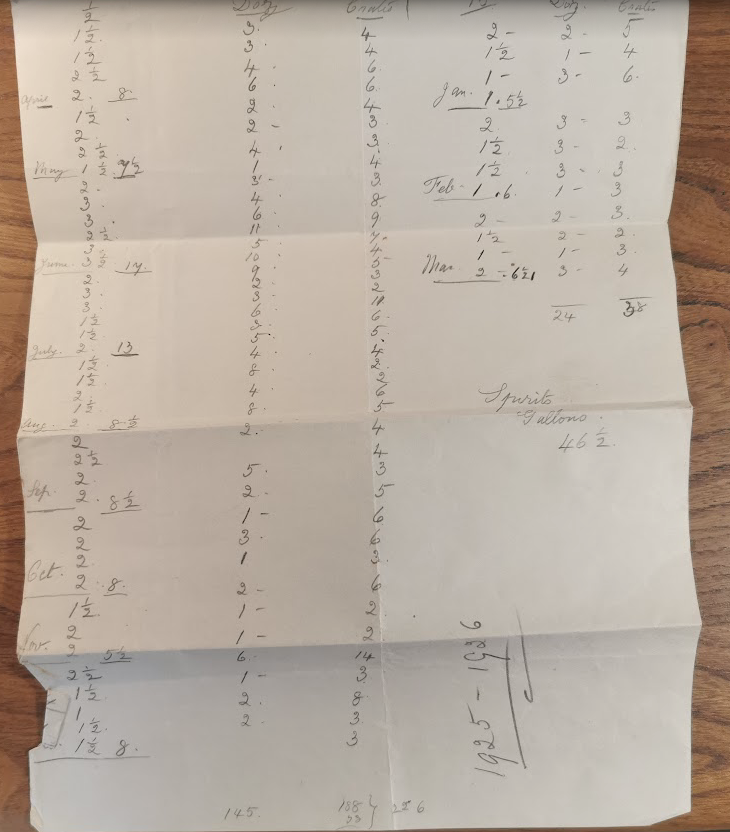 ½ Doz Crates
1½ 3 4
1½ 3 4
2½ 4 6
April 2 8 6 6
1½ 2 4
2 2 - 3
2½ 4 3
May 1½ 7½ 1 4
2 3 - 3
3 4 8
3 6 9
2½ 11
3 5 4
June 3½ 17 10 5
2 9 3
3 2 2
3 3 - 11
1½ 6 6
1½ 3 5
July 2 13 5 4
1½ 4 2
1½ 8 2
2 4 6
1½ 8 5
Aug 2 8½ 2 4
2 4
2½ 5 3
2 2 5
Sep. 2 8½ 1 - 6
2 3 6
2 1 3
2
Oct. 2 8 2 - 6
1½ 1 - 2
2 1 - 2
Nov. 2 5½ 6 14
2½ 1 - 3
1½ 2 8
1 2 3
1½ 3
1½ 8
145. 188 } 226
Doz. Crates
2 - 2 - 5
1½ 1 - 4
1 - 3 - 6
Jan. 1. 5½
2 3 - 3
1½ 3 - 2
1½ 3 - 3
Feb - 1 . 6 1 - 3
2 - 2 - 3
1½ 2 - 2
1 - 1 - 3
Mar. 2 - 6½ 3 - 4
24 38
Spirits
Gallons.
46½.
1925 - 1926